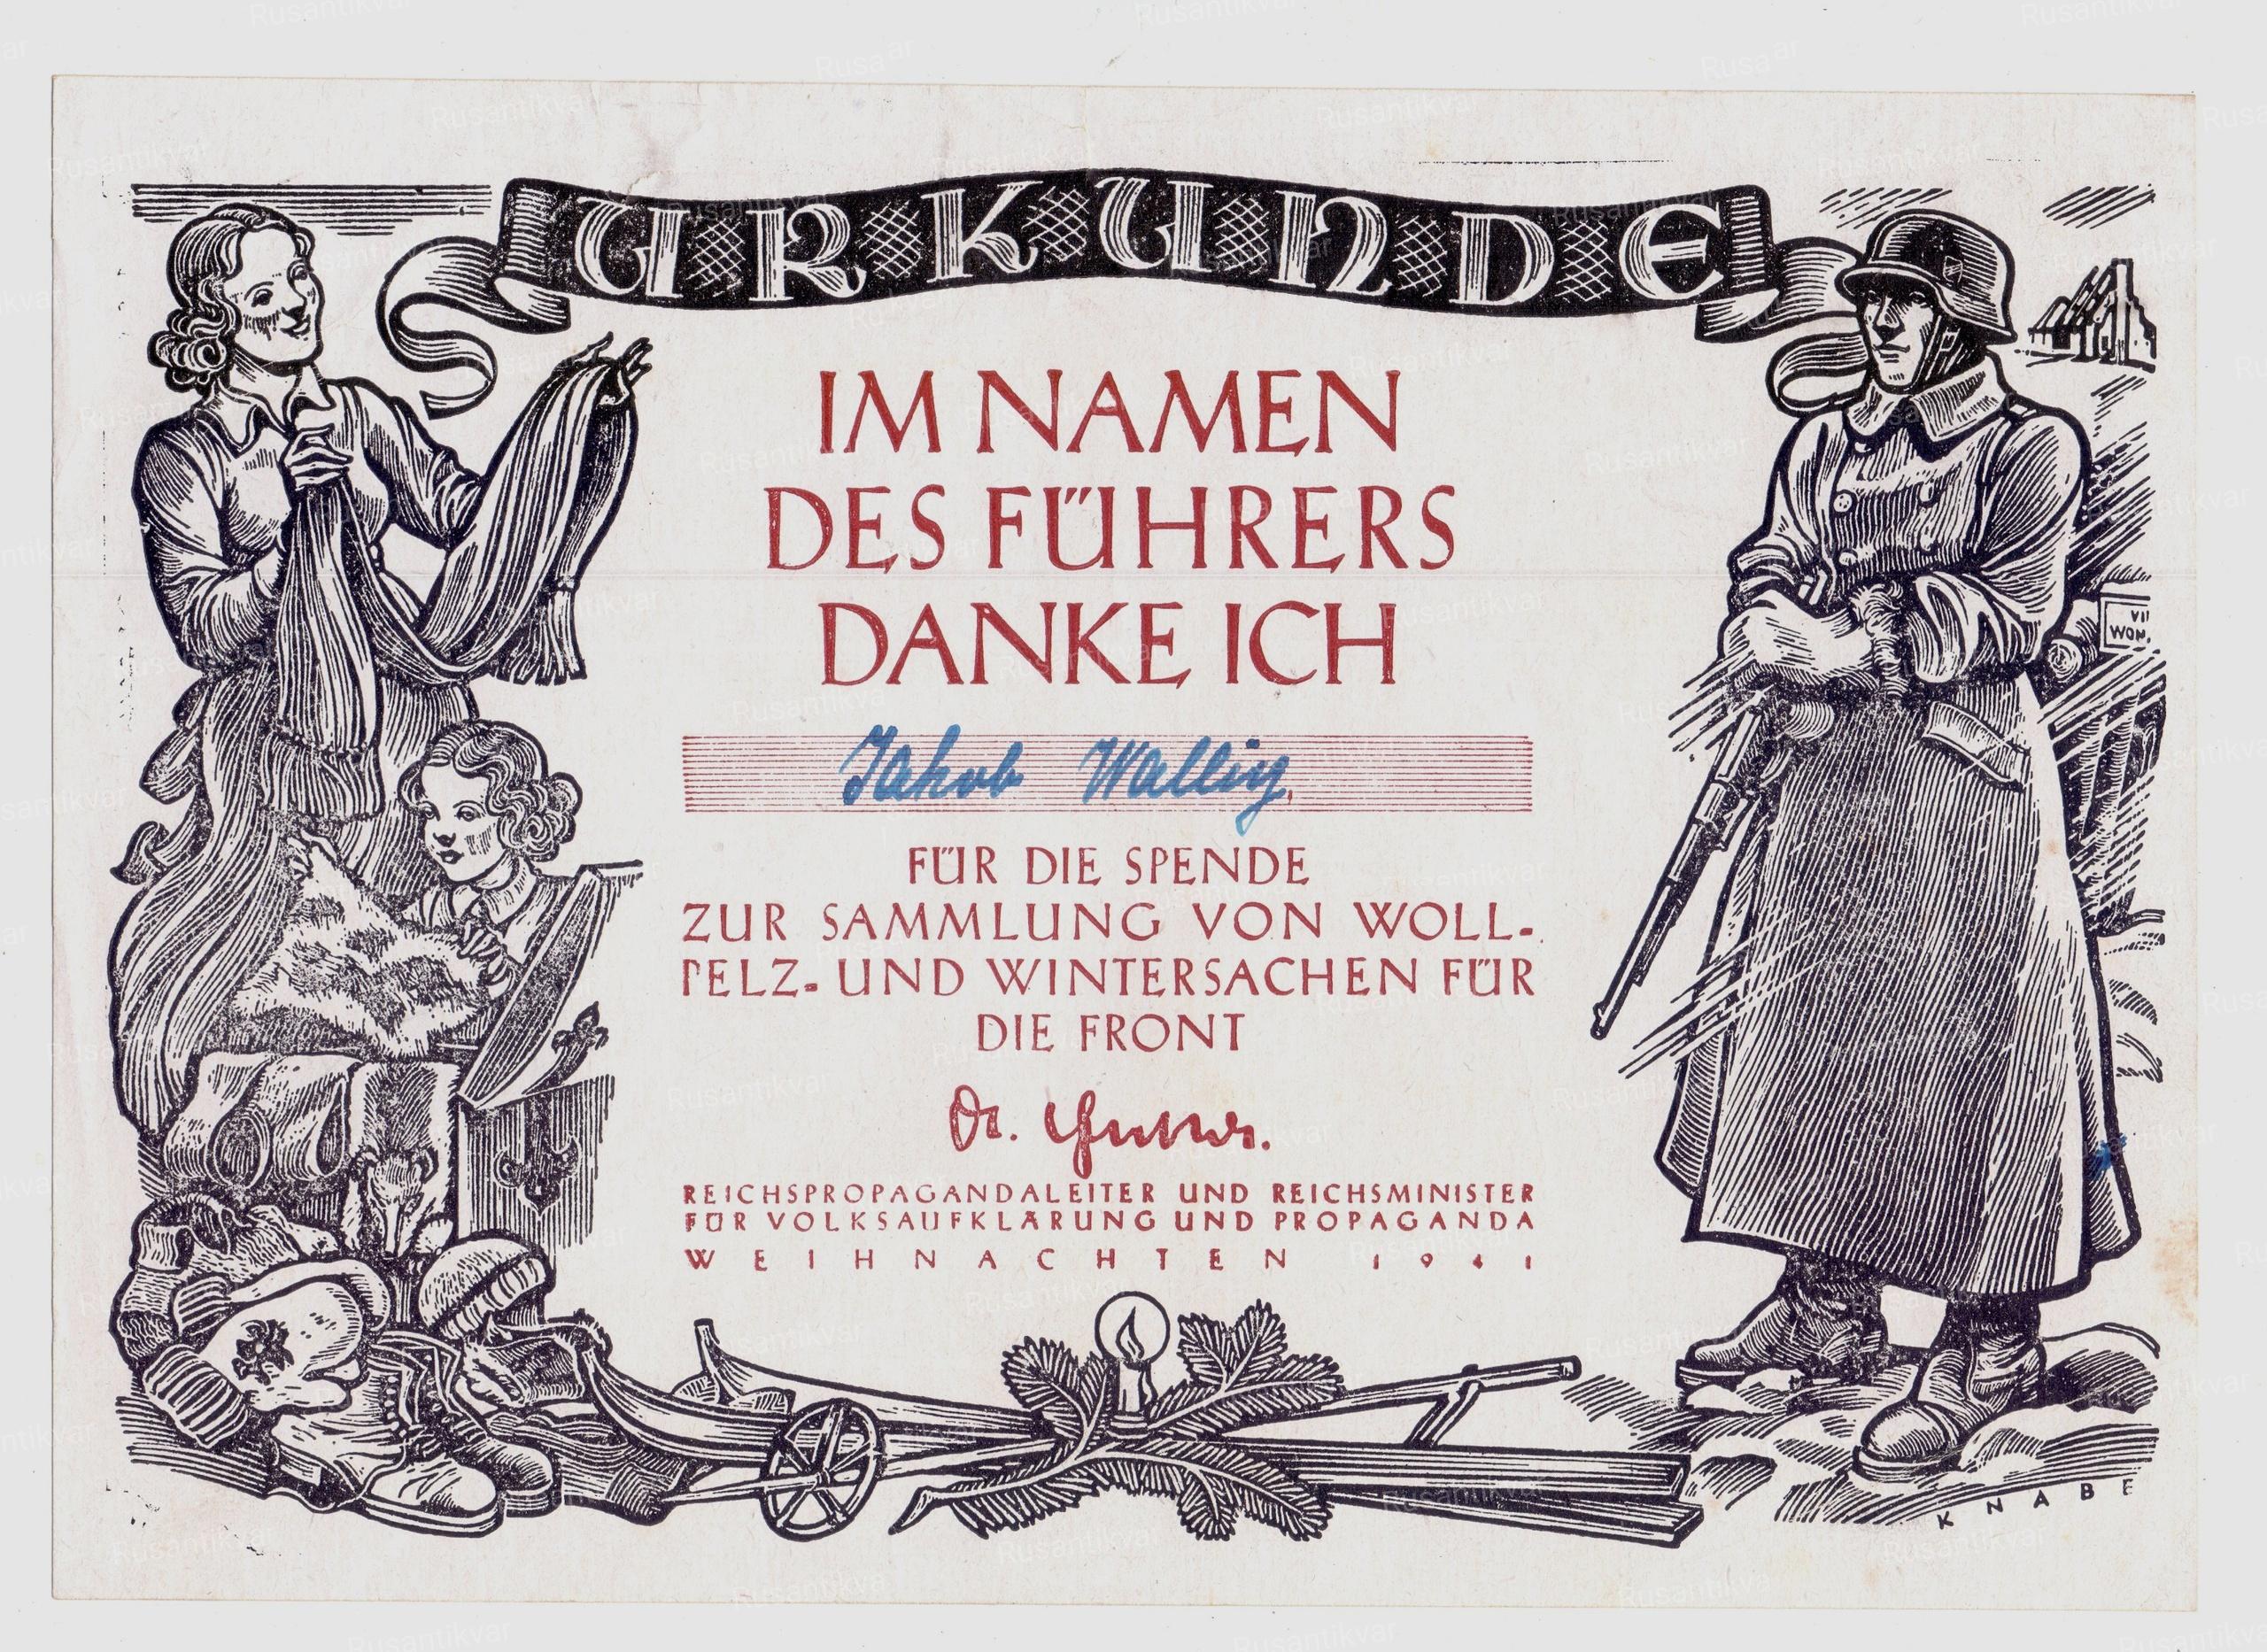 URKUNDE
IM NAMEN
DES FÜHRERS
DANKE ICH
Jakob Walling
FÜR DIE SPENDE
ZUR SAMMLUNG VON WOLL-
PELZ- UND WINTERSACHEN FÜR
DIE FRONT
Dr. Goebbels.
REICHSPROPAGANDALEITER UND REICHSMINISTER
FÜR VOLKSAUFKLÄRUNG UND PROPAGANDA
WEIHNACHTEN 1941
VII
WOH.
KNABE
Rusantikvar